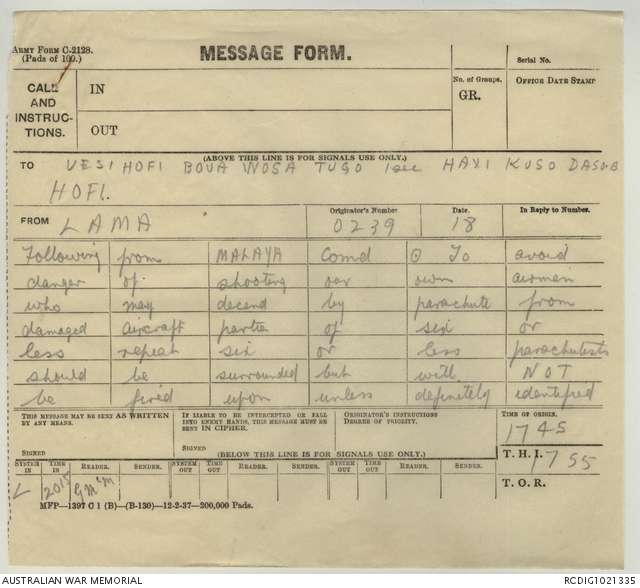 ARMY FORM C-2128.
(Pads of 100.)
MESSAGE FORM.
Serial No.
CALL
AND
INSTRUC-
TIONS.
IN
OUT
No. of Groups.
GR.
OFFICE DATE STAMP
(ABOVE THIS LINE IS FOR SIGNALS USE ONLY.)
TO VESI HOFI BOVA WOSA TUGO HAVI KUSO
HOFI.
FROM LAMA
Originator's Number
0239
Date.
18
In Reply to Number.
Following from MALAYA Comd ⊙ To avoid
danger of shooting our own airmen
who may decend by parachute from
damaged aircraft partie of six or
less repeat six or less parachutests
should be surrounded but with NOT
be fired upon unless definitely identified
THIS MESSAGE MAY BE SENT AS WRITTEN
BY ANY MEANS.
SIGNED
IF LIABLE TO BE INTERCEPTED OR FALL
INTO ENEMY HANDS, THIS MESSAGE MUST BE
SENT IN CIPHER.
SIGNED
ORIGINATOR'S INSTRUCTIONS
DEGREE OF PRIORITY.
(BELOW THIS LINE IS FOR SIGNALS USE ONLY.)
TIME OF ORIGIN.
1745
T. H. I. 1755
T. O. R.
SYSTEM IN
TIME IN
READER.
SENDER.
SYSTEM OUT
TIME OUT
READER.
SENDER.
SYSTEM OUT
TIME OUT
READER.
SENDER.
L 2015 GMcM
MFP—1397 C 1 (B)—(B-130)—12-2-37—200,000 Pads.
AUSTRALIAN WAR MEMORIAL
RCDIG1021335